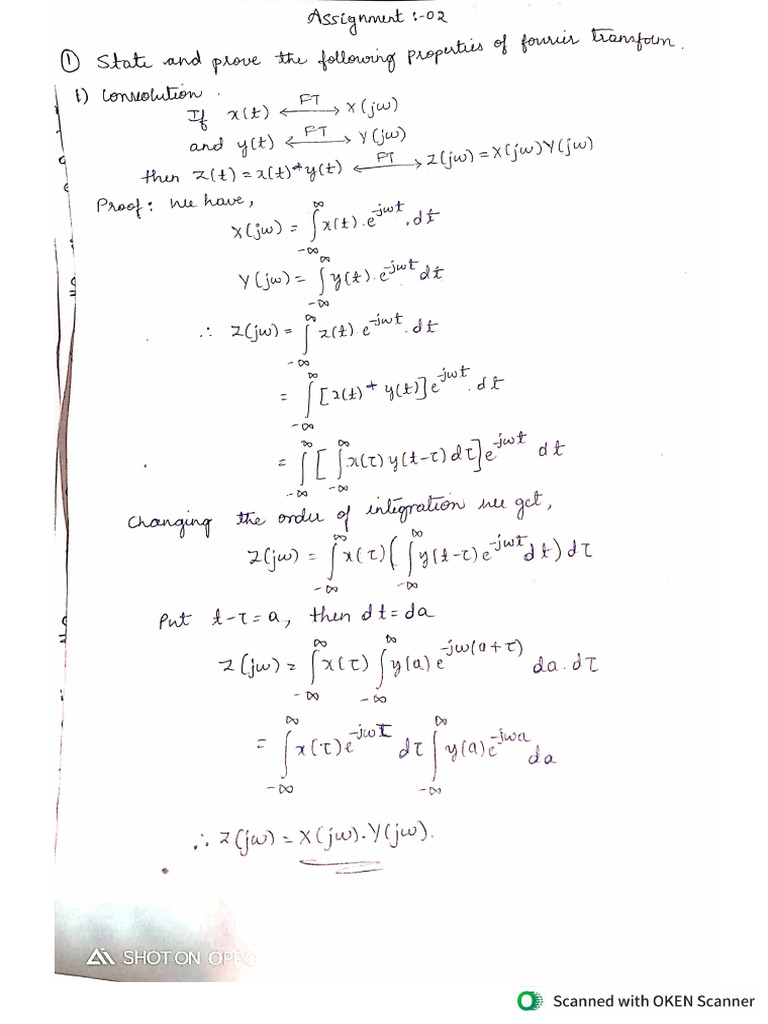 Assignment :-02
① State and prove the following properties of fourier transform.
i) Convolution.
If x(t) ←FT→ X(jω)
and y(t) ←FT→ Y(jω)
then z(t) = x(t)*y(t) ←FT→ Z(jω) = X(jω)Y(jω)
Proof: we have,
X(jω) = ∫_{-∞}^{∞} x(t). e^{-jωt}. dt
Y(jω) = ∫_{-∞}^{∞} y(t). e^{-jωt} dt
∴ Z(jω) = ∫_{-∞}^{∞} z(t). e^{-jωt}. dt
= ∫_{-∞}^{∞} [x(t) * y(t)] e^{-jωt}. dt
= ∫_{-∞}^{∞} [∫_{-∞}^{∞} x(τ) y(t-τ) dτ] e^{-jωt} dt
Changing the order of integration we get,
Z(jω) = ∫_{-∞}^{∞} x(τ) (∫_{-∞}^{∞} y(t-τ) e^{-jωt} dt) dτ
Put t-τ = a, then dt = da
Z(jω) = ∫_{-∞}^{∞} x(τ) ∫_{-∞}^{∞} y(a) e^{-jω(a+τ)} da. dτ
= ∫_{-∞}^{∞} x(τ) e^{-jωτ} dτ ∫_{-∞}^{∞} y(a) e^{-jωa} da
∴ Z(jω) = X(jω). Y(jω).
SHOT ON OPPO
Scanned with OKEN Scanner